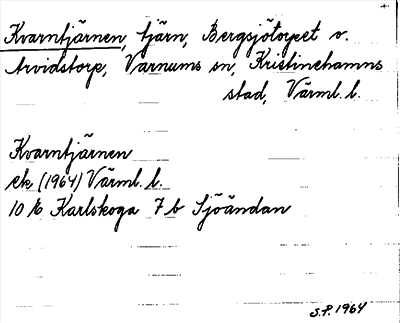 Kvarntjärnen, tjärn, Bergsjötorpet v.
Arvidstorp, Varnums sn, Kristinehamns
stad, Värml. l.
Kvarntjärnen
ek (1964) Värml. l.
10 E Karlskoga 7 b Sjöändan
S.P. 1964